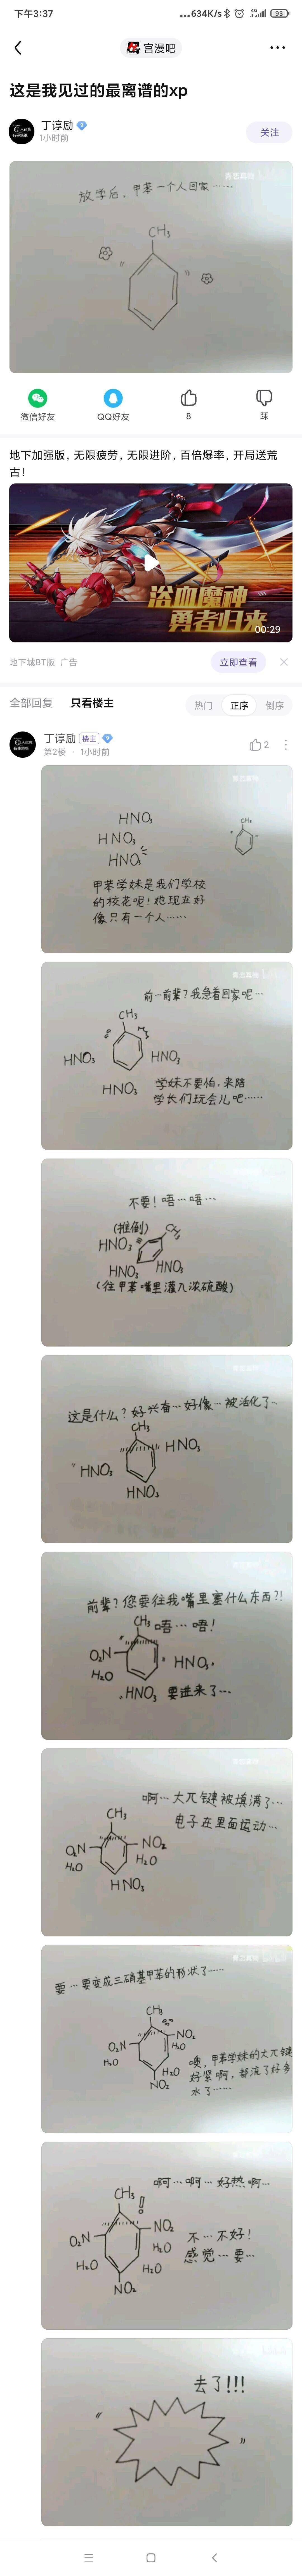 下午3:37
634K/s
4G
93
宫漫吧
这是我见过的最离谱的xp
丁谆励
1小时前
关注
放学后，甲苯一个人回家……
CH₃
微信好友
QQ好友
8
踩
地下加强版，无限疲劳，无限进阶，百倍爆率，开局送荒
古！
浴血魔神
勇者归来
00:29
地下城BT版 广告
立即查看
全部回复
只看楼主
热门
正序
倒序
丁谆励
楼主
第2楼 · 1小时前
2
HNO₃
HNO₃
HNO₃
CH₃
甲苯学妹是我们学校
的校花呢！她现在好
像只有一个人……
前…前辈？我急着回家呢…
CH₃
HNO₃
HNO₃
HNO₃
学妹不要怕，来陪
学长们玩会儿吧……
不要！唔…唔…
(推倒)
CH₃
HNO₃
HNO₃
HNO₃
(往甲苯嘴里灌入浓硫酸)
这是什么？好兴奋…好像…被活化了~
CH₃
HNO₃
HNO₃
HNO₃
前辈？您要往我嘴里塞什么东西？！
CH₃
唔…唔！
O₂N
H₂O
HNO₃
HNO₃
要进来了…
啊…大π键被填满了…
电子在里面运动…
CH₃
O₂N
NO₂
H₂O
H₂O
HNO₃
要…要变成三硝基甲苯的形状了……
CH₃
O₂N
NO₂
H₂O
H₂O
H₂O
NO₂
噢，甲苯学妹的大π键
好紧啊，都流了好多
水了……
啊…啊…好热啊…
CH₃
O₂N
NO₂
H₂O
H₂O
H₂O
NO₂
不…不好！
感觉…要…
去了!!!